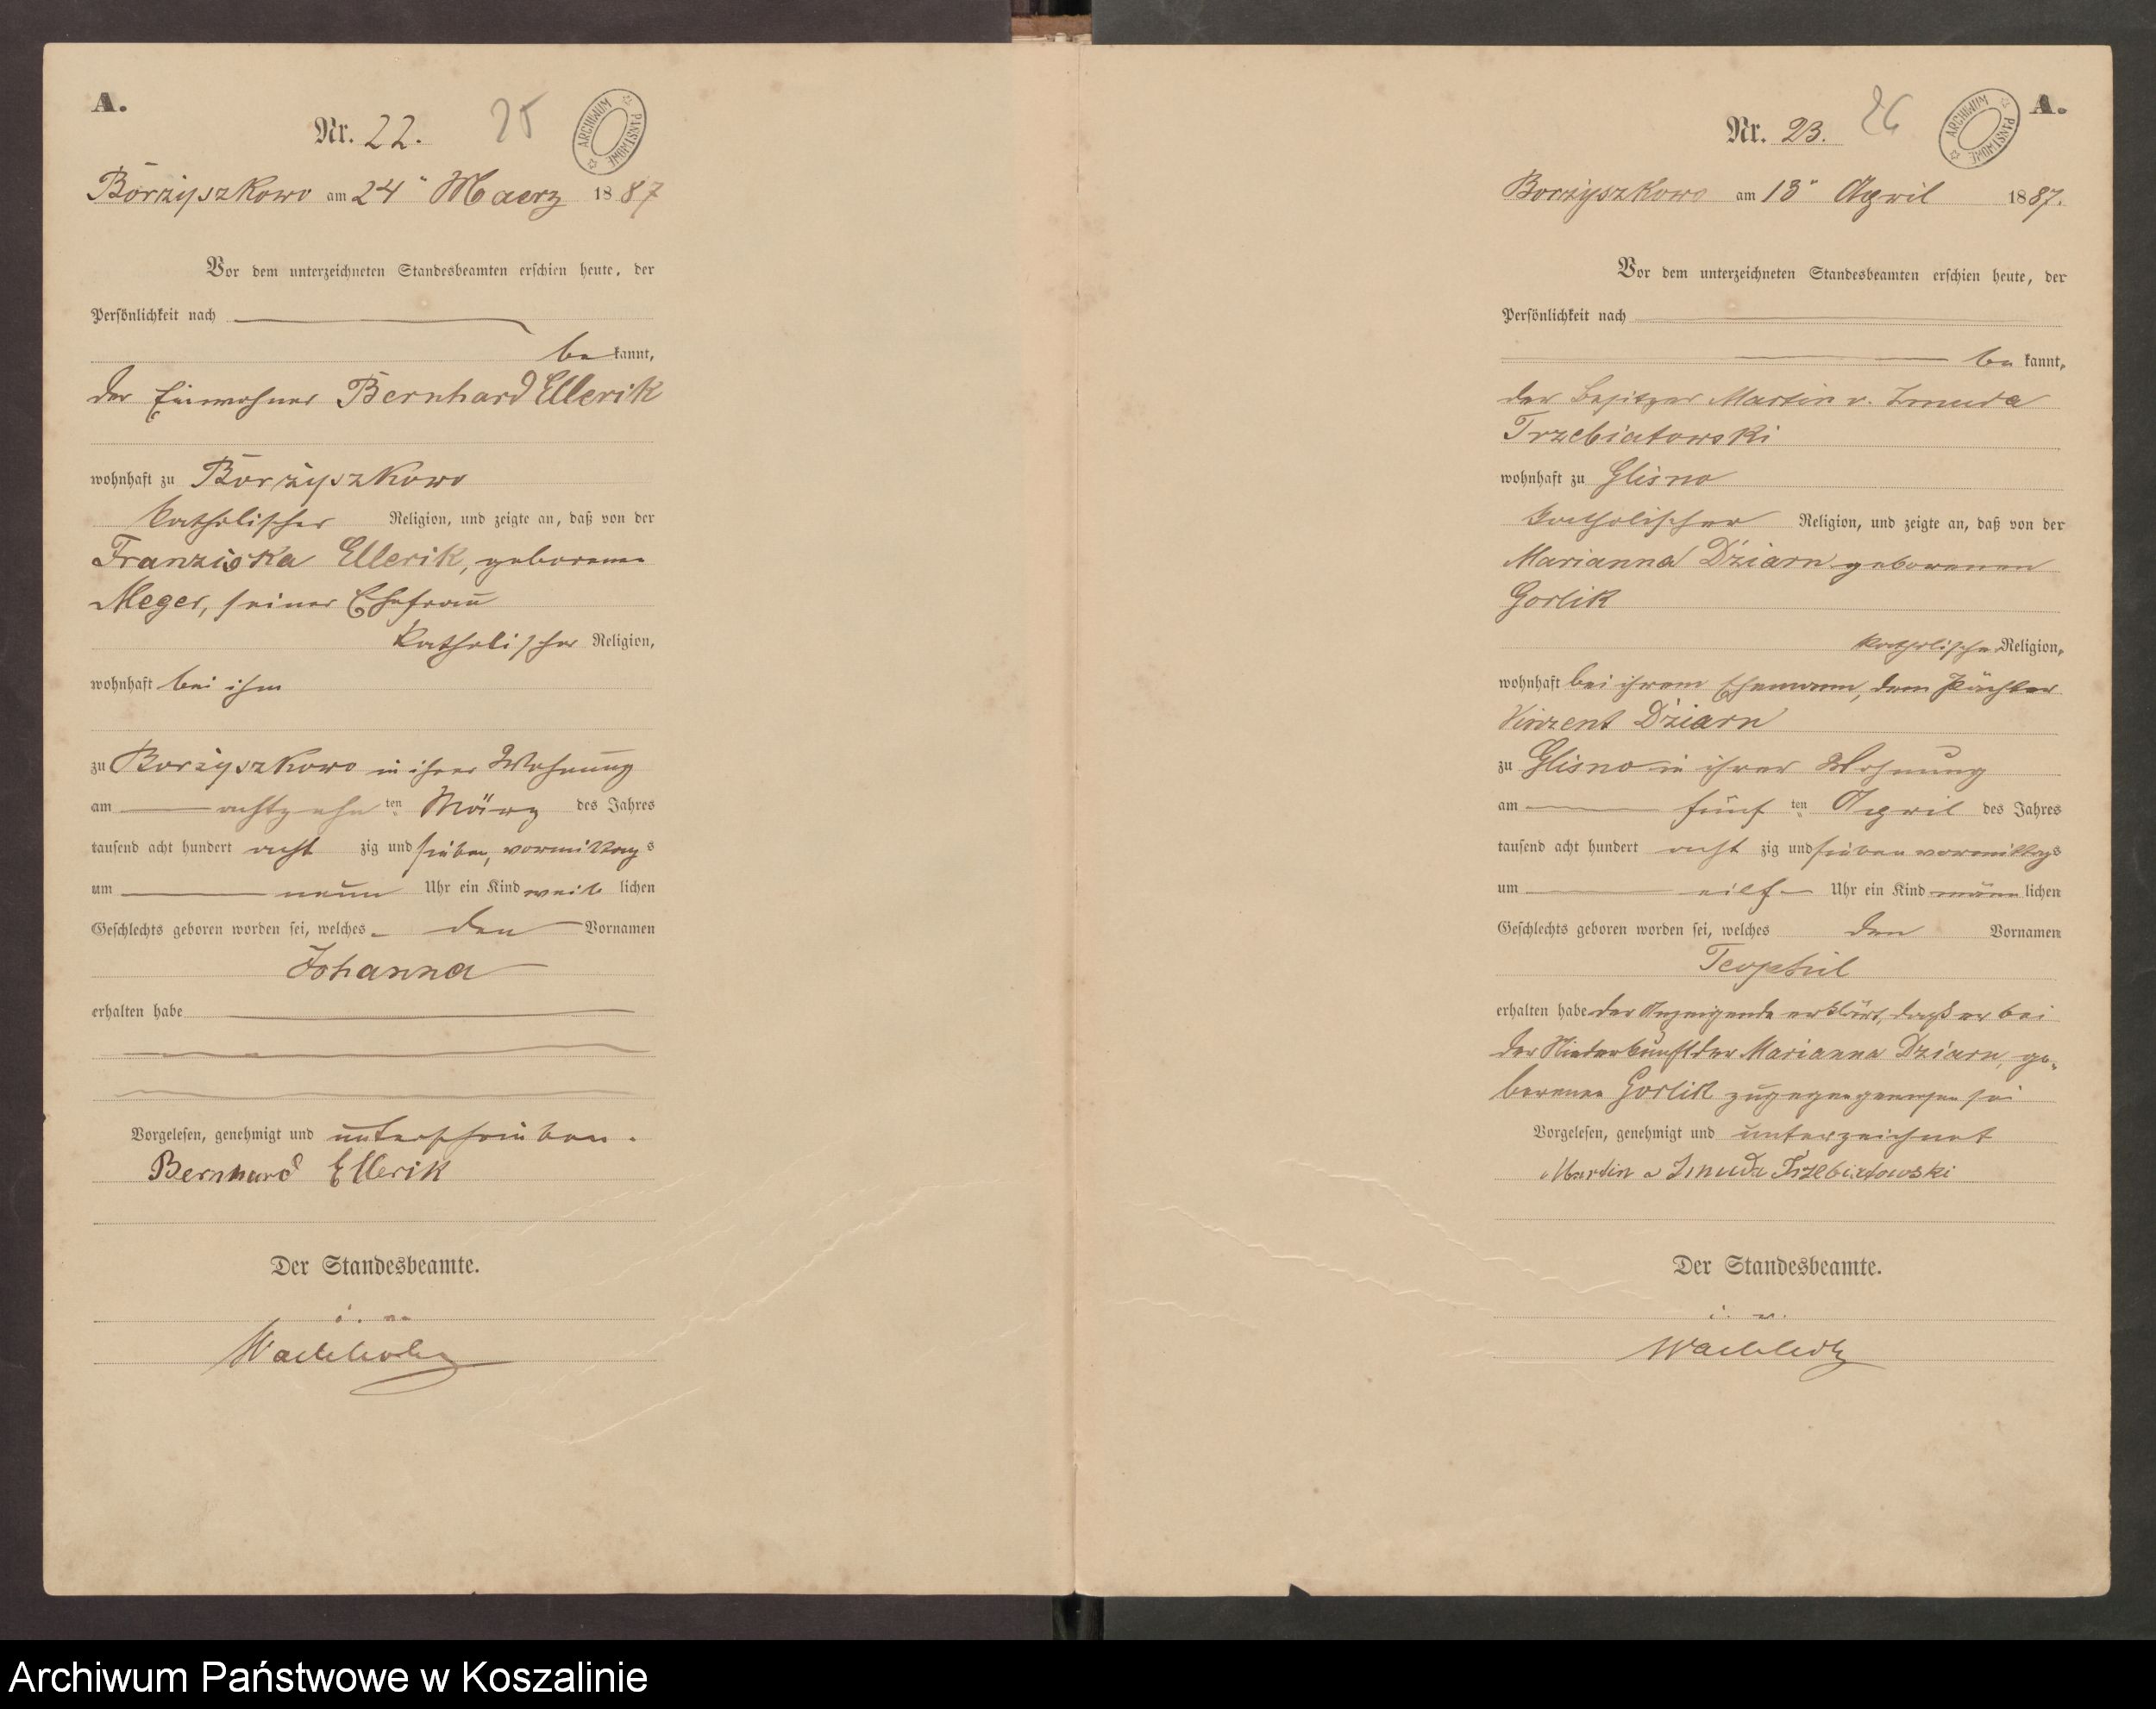 A.
Nr. 22.
25
ARCHIWUM PAŃSTWOWE
Borzyszkowo am 24" Maerz 1887
Vor dem unterzeichneten Standesbeamten erschien heute, der
Persönlichkeit nach
be kannt,
der Einwohner Bernhard Ellerik
wohnhaft zu Borzyszkowo
katholischer Religion, und zeigte an, daß von der
Franziska Ellerik, geborenen
Meger, seiner Ehefrau
katholischer Religion,
wohnhaft bei ihm
zu Borzyszkowo in ihrer Wohnung
am achtzehn ten März des Jahres
tausend acht hundert acht zig und sieben, vormittag s
um neun Uhr ein Kind weib lichen
Geschlechts geboren worden sei, welches den Vornamen
Johanna
erhalten habe
Vorgelesen, genehmigt und unterschrieben.
Bernhard Ellerik
Der Standesbeamte.
i. v.
Wachholz
A.
Nr. 23.
26
ARCHIWUM PAŃSTWOWE
Borzyszkowo am 13" April 1887.
Vor dem unterzeichneten Standesbeamten erschien heute, der
Persönlichkeit nach
be kannt,
der Besitzer Martin v. Zmuda
Trzebiatowski
wohnhaft zu Glisno
katholischer Religion, und zeigte an, daß von der
Marianna Dziarn geborenen
Gorlik
katholischer Religion,
wohnhaft bei ihrem Ehemann, dem Pächter
Vinzent Dziarn
zu Glisno in ihrer Wohnung
am fünf ten April des Jahres
tausend acht hundert acht zig und sieben vormittags
um eilf Uhr ein Kind männ lichen
Geschlechts geboren worden sei, welches den Vornamen
Teophil
erhalten habe der Anzeigende erklärt, daß er bei
der Niederkunft der Marianna Dziarn, ge-
borenen Gorlik zugegen gewesen sei
Vorgelesen, genehmigt und unterzeichnet
Martin v Zmuda Trzebiatowski
Der Standesbeamte.
i. v.
Wachholz
Archiwum Państwowe w Koszalinie